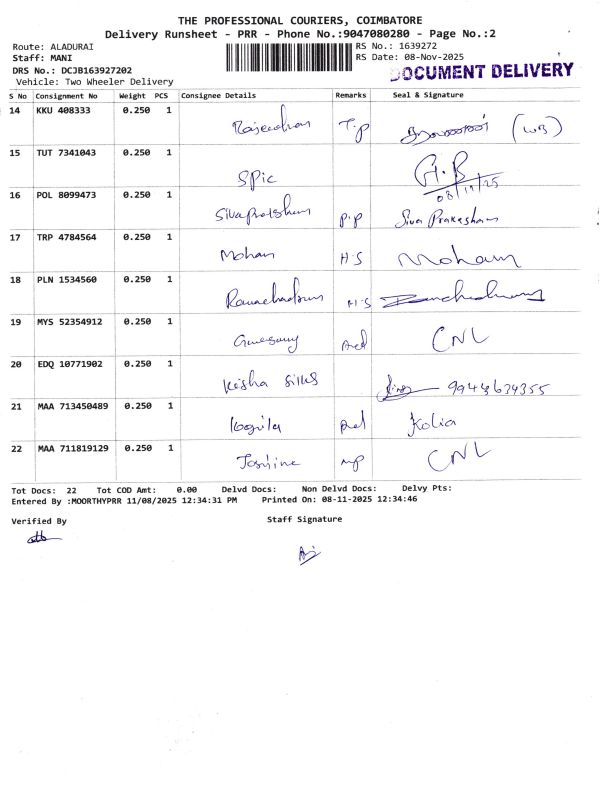 THE PROFESSIONAL COURIERS, COIMBATORE
Delivery Runsheet - PRR - Phone No.:9047080280 - Page No.:2
Route: ALADURAI RS No.: 1639272
Staff: MANI RS Date: 08-Nov-2025
DRS No.: DCJB163927202 DOCUMENT DELIVERY
Vehicle: Two Wheeler Delivery
S No Consignment No Weight PCS Consignee Details Remarks Seal & Signature
14 KKU 408333 0.250 1 T.P (WB)
15 TUT 7341043 0.250 1 Spic G.B 08/11/25
16 POL 8099473 0.250 1 P.P Siva Prakasham
17 TRP 4784564 0.250 1 Mohan H.S Mohan
18 PLN 1534560 0.250 1 H.S
19 MYS 52354912 0.250 1 CNL
20 EDQ 10771902 0.250 1 Kesha Silks
21 MAA 713450489 0.250 1 Kolia
22 MAA 711819129 0.250 1 Jasmine mp CNL
Tot Docs: 22 Tot COD Amt: 0.00 Delvd Docs: Non Delvd Docs: Delvy Pts:
Entered By :MOORTHYPRR 11/08/2025 12:34:31 PM Printed On: 08-11-2025 12:34:46
Verified By Staff Signature